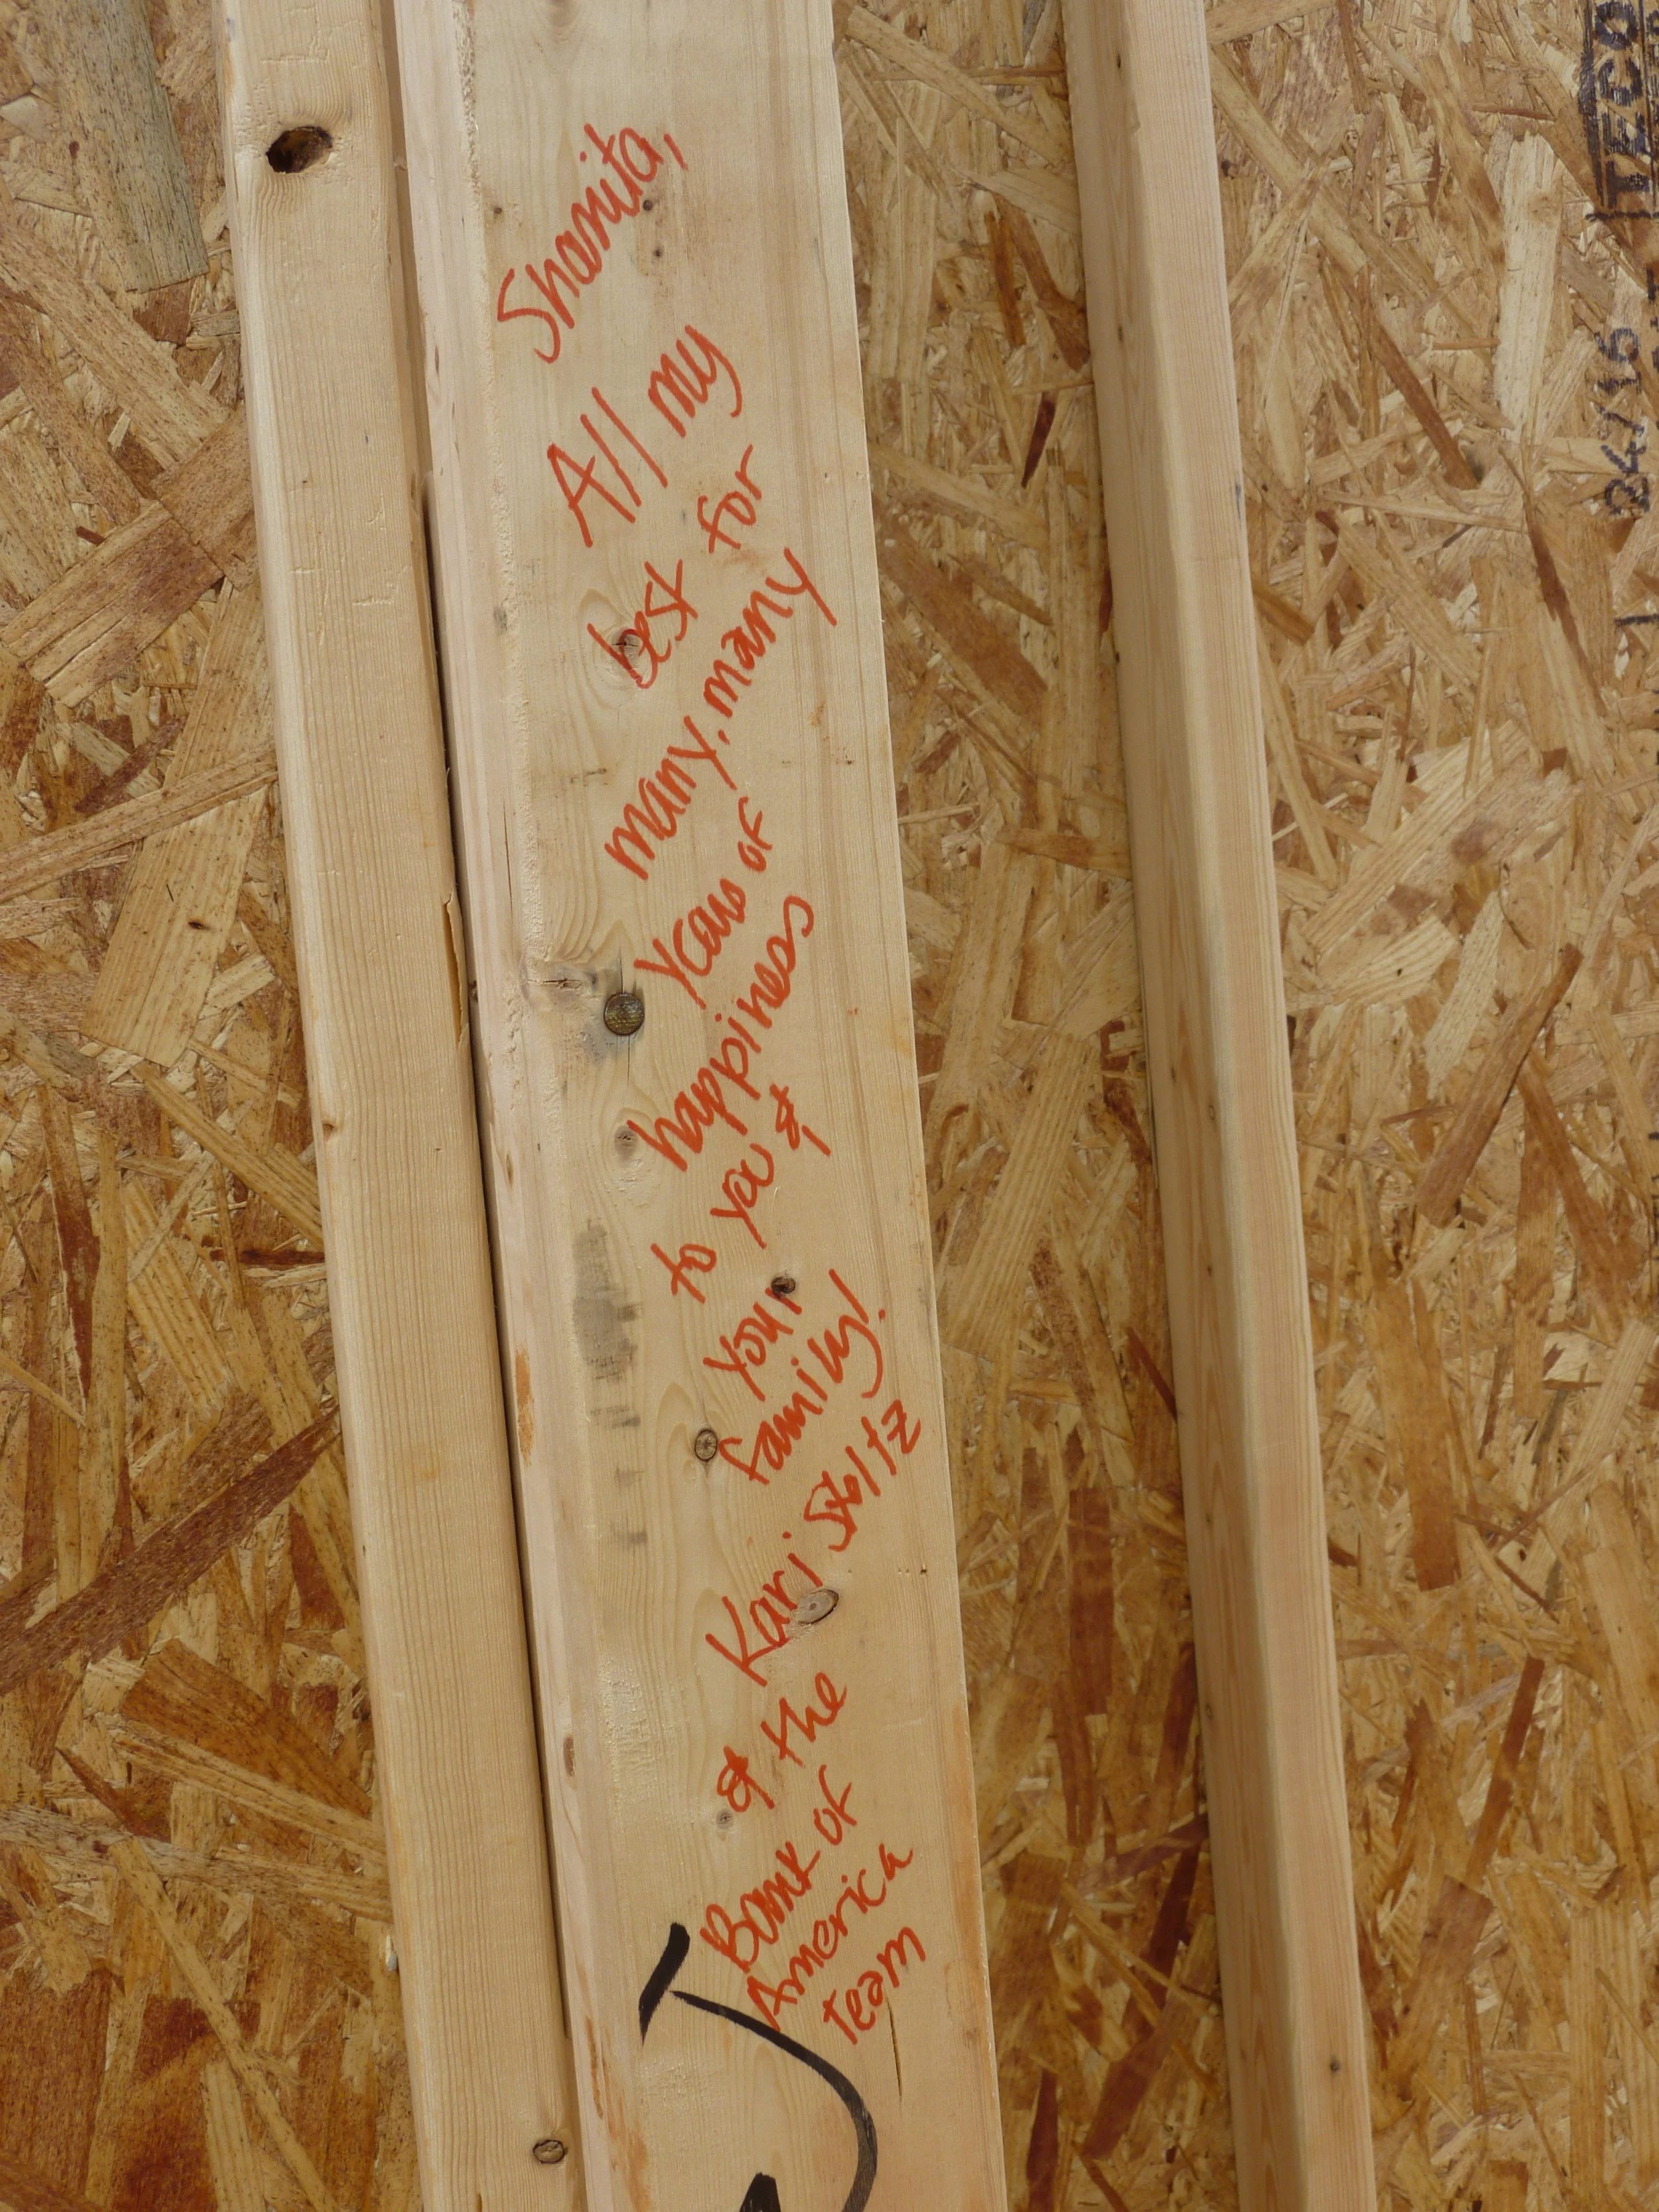 Shanita,
All my
best for
many, many
years of
happiness
to you &
your
family!
Kari Stoltz
& the
Bank of
America
team
J
TECO
24/16